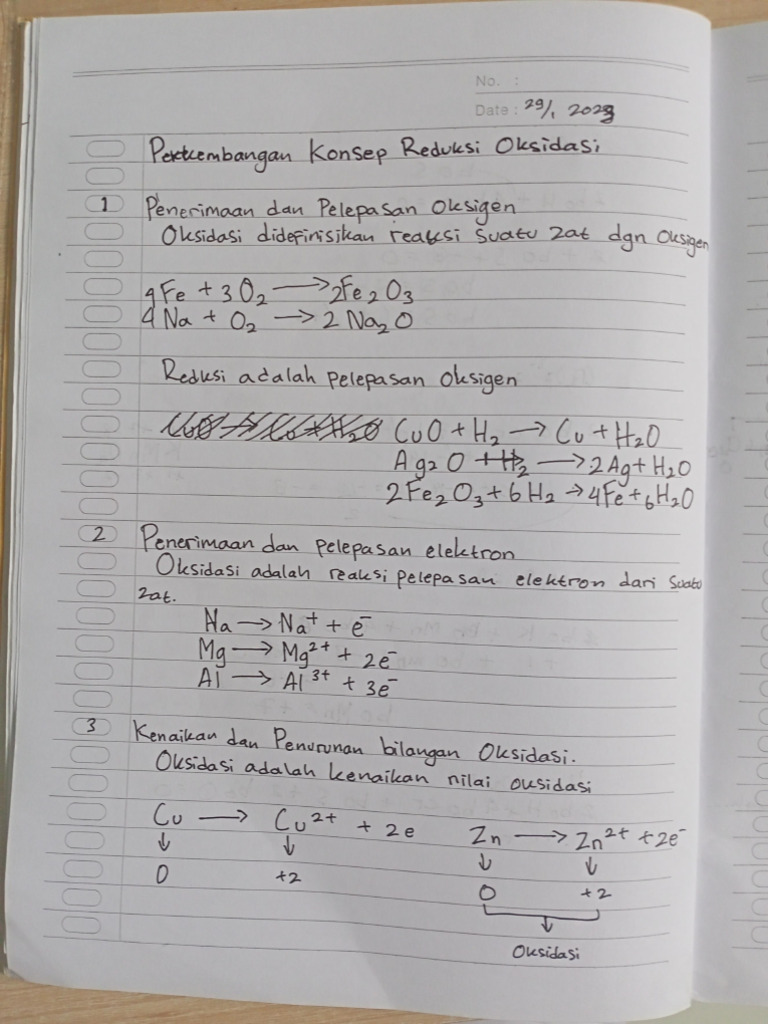 No. :
Date : 29/1 2023
Perkembangan Konsep Reduksi Oksidasi
1 Penerimaan dan Pelepasan Oksigen
Oksidasi didefinisikan reaksi suatu zat dgn Oksigen
4Fe + 3O₂ → 2Fe₂O₃
4Na + O₂ → 2Na₂O
Reduksi adalah pelepasan Oksigen
CuO + H₂ → Cu + H₂O
Ag₂O + H₂ → 2Ag + H₂O
2Fe₂O₃ + 6H₂ → 4Fe + 6H₂O
2 Penerimaan dan pelepasan elektron
Oksidasi adalah reaksi pelepasan elektron dari suatu
zat.
Na → Na⁺ + e⁻
Mg → Mg²⁺ + 2e⁻
Al → Al³⁺ + 3e⁻
3 Kenaikan dan Penurunan bilangan Oksidasi.
Oksidasi adalah kenaikan nilai oksidasi
Cu → Cu²⁺ + 2e Zn → Zn²⁺ + 2e⁻
↓ ↓ ↓ ↓
0 +2 0 +2
↓
Oksidasi